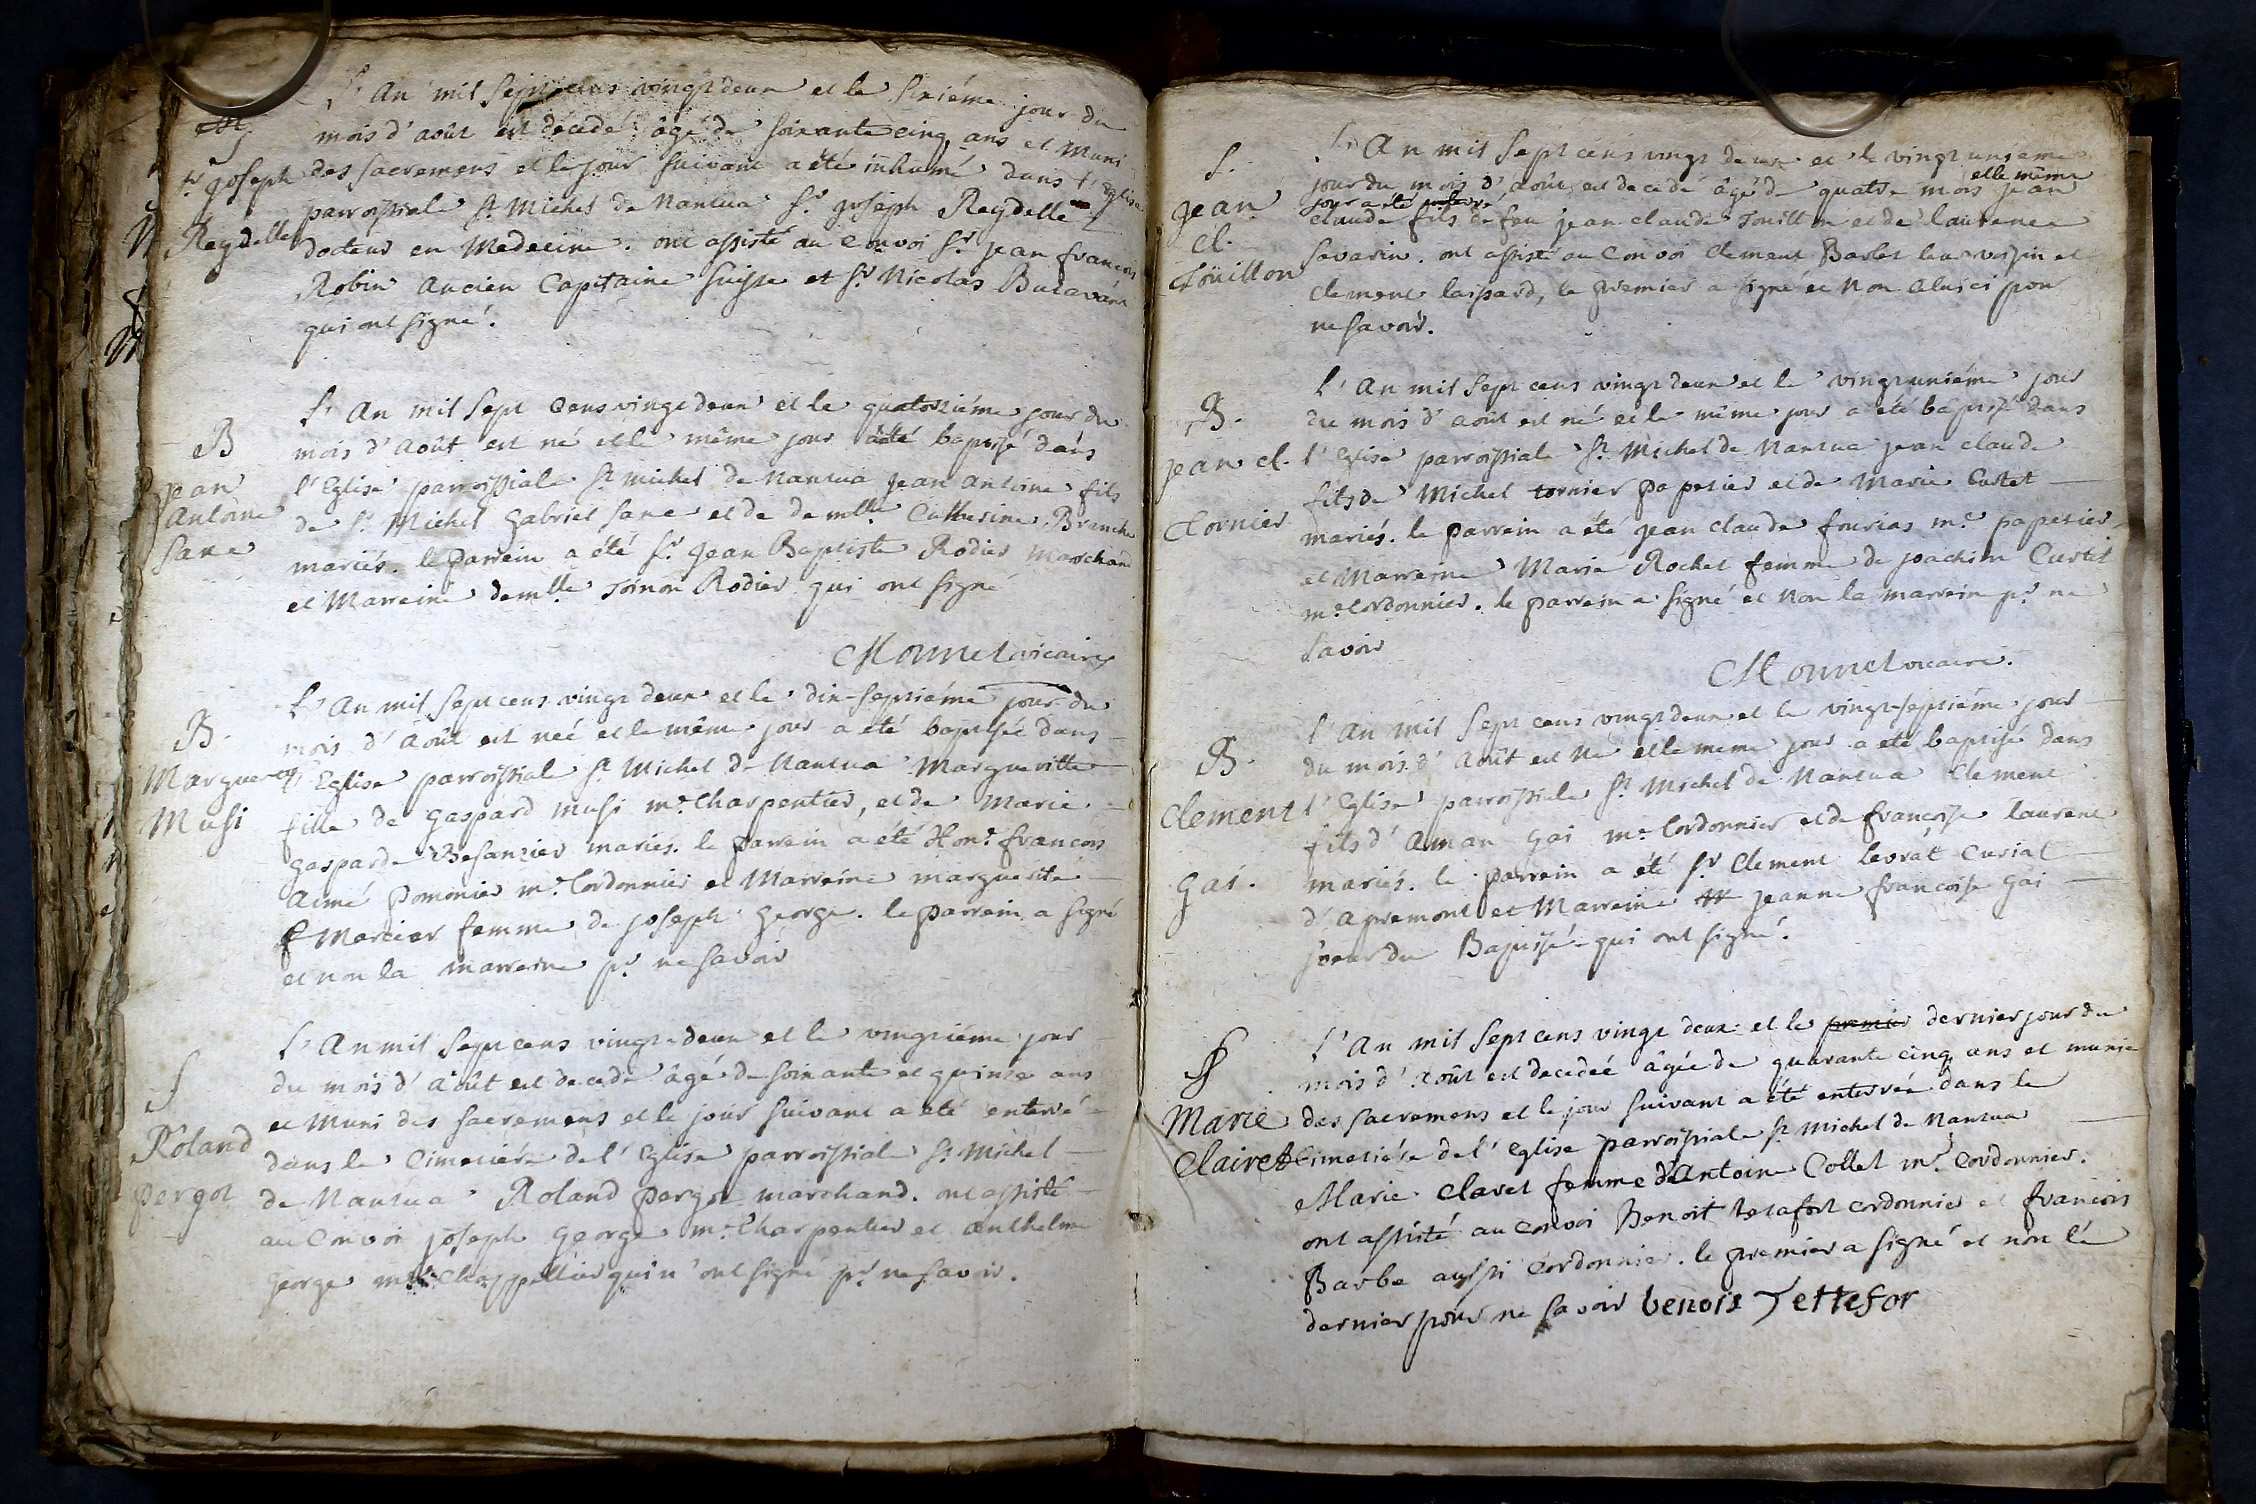 L'An mil sept cens vingt deux et le sixiéme jour du
mois d'août est décedé âgé de soixante cinq ans et muni
des sacremens et le jour suivant a été inhumé dans l'Eglise
parroissiale St. Michel de Nantua Sr. joseph Reydelle
docteur en Medecine. ont assisté au Convoi Sr. jean francois
Robin Ancien Capitaine suisse et Sr. Nicolas
qui ont signé.
Sr. joseph
Reydelle
L'An mil sept cens vingt deux et le quatorziéme jour du
mois d'Août est né et le même jour a été baptisé dans
l'Eglise parroissiale St. michel de Nantua jean antoine fils
de Sr. Michel gabriel Sane et de demlle Catherine Branche
mariés. le parrein a été Sr. jean Baptiste Rodier marchand
et Marreine demlle Toinon Rodier qui ont signé
B
jean
Antoine
Sane
Monnet vicaire
L'An mil sept cens vingt deux et le dix-septiéme jour du
mois d'Août est née et le même jour a été baptisée dans
l'Eglise parroissiale St. Michel de Nantua Margueritte
fille de gaspard musi me. Charpentier, et de Marie
gasparde Besanzier mariés. le parrein a été Hone. francois
Aimé pomonier me. Cordonnier et Marreine marguerite
Mercier femme de joseph george. le parrein a signé
et non la marreine pr. ne savoir
B.
Margueritte
Musi
L'An mil sept cens vingt deux et le vingtiéme jour
du mois d'août est decedé âgé de soixante et quinze ans
et muni des sacremens et le jour suivant a été enterré
dans le Cimetiére de l'Eglise parroissiale St. Michel
de Nantua Roland pergot marchand. ont assisté
au Convoi joseph george me. Charpentier et anthelme
george me. Chappellier qui n'ont signé pr. ne savoir.
S
Roland
pergot
L'An mil sept cens vingt deux et le vingt uniéme
jour du mois d'Août est decedé âgé de quatre mois et le même
jour a été enterré jean
claude fils de feu jean claude Touillon et de laurence
savarin. ont assisté au Convoi Clement Barbet et
Clement laissard, le premier a signé et non celui ci pour
ne savoir.
S.
jean
cl.
Touillon
L'An mil sept cens vingt deux et le vingt uniéme jour
du mois d'août est né et le même jour a été baptisé dans
l'Eglise parroissiale St. Michel de Nantua jean claude
fils de Michel tornier papetier et de Marie Curtet
mariés. le parrein a été jean claude fourias me. papetier
et Marreine Marie Rochet femme de joachim Curtet
me. Cordonnier. le parrein a signé et non la marrein pr. ne
savoir
B.
jean cl.
Tornier
Monnet vicaire.
L'An mil sept cens vingt deux et le vingt septiéme jour
du mois d'Août est né et le meme jour a été baptisé dans
l'Eglise parroissiale St. Michel de Nantua Clement
fils d'Aman gai me. Cordonnier et de francoise laurent
mariés. le parrein a été Sr. Clement levrat Curial
d'apremont et Marreine jeanne francoise gai
soeur du Baptisé qui ont signé.
B.
Clement
gai.
L'An mil sept cens vingt deux et le premier dernier jour du
mois d'Août est decedée âgée de quarante cinq ans et munie
des sacremens et le jour suivant a été enterrée dans le
Cimetiére de l'Eglise parroissiale St. michel de Nantua
Marie Claret femme d'Antoine Collet me. Cordonnier.
ont assisté au convoi Benoit tetafort cordonnier et francois
Barbe aussi Cordonnier. le premier a signé et non le
dernier pour ne savoir benois Tettefor
S
Marie
Clairet